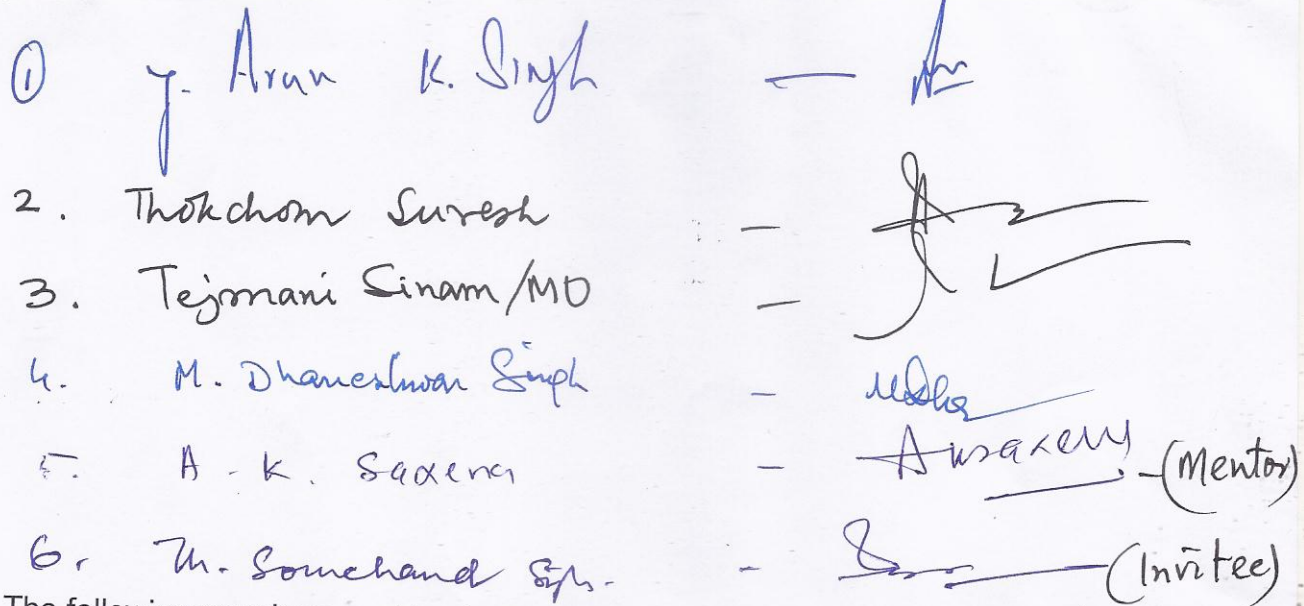 ① Y. Arun K. Singh —
2. Thokchom Suresh —
3. Tejmani Sinam/MO —
4. M. Dhaneshwar Singh - MDha
5. A. K. Saxena - Aksaxena - (Mentor)
6. Th. Somchand Sgh. - (Invitee)
The following